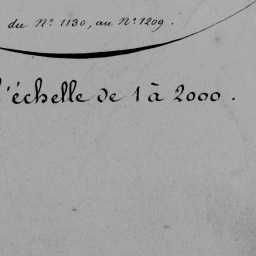 du N.° 1130, au N.° 1209.
l'échelle de 1 à 2000.